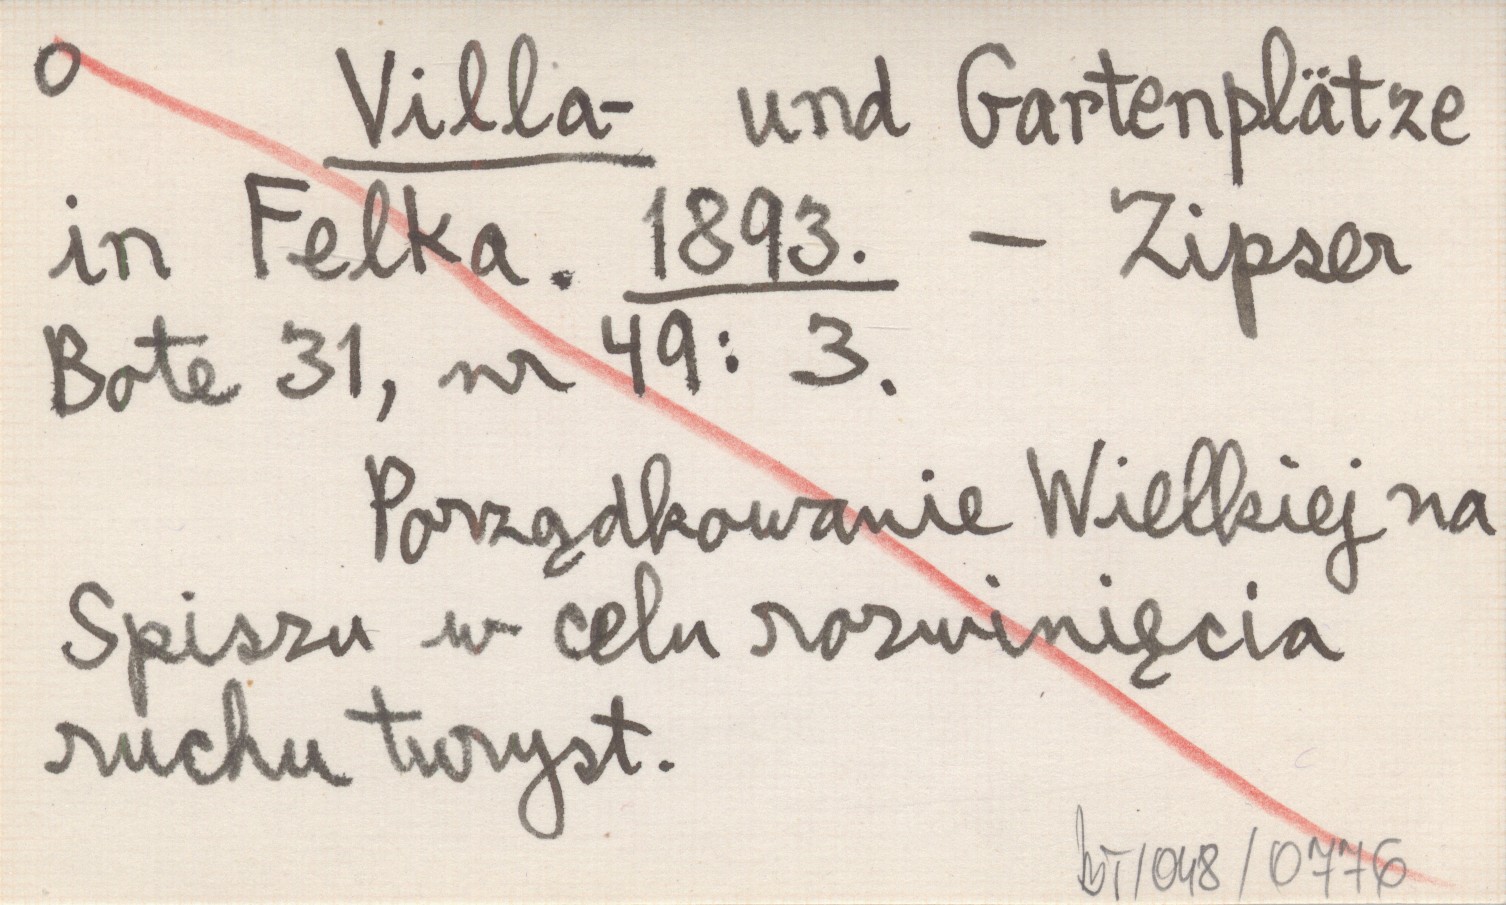 O Villa- und Gartenplätze
in Felka. 1893. – Zipser
Bote 31, nr 49: 3.
Porządkowanie Wielkiej na
Spiszu w celu rozwinięcia
ruchu turyst.
/048/0776